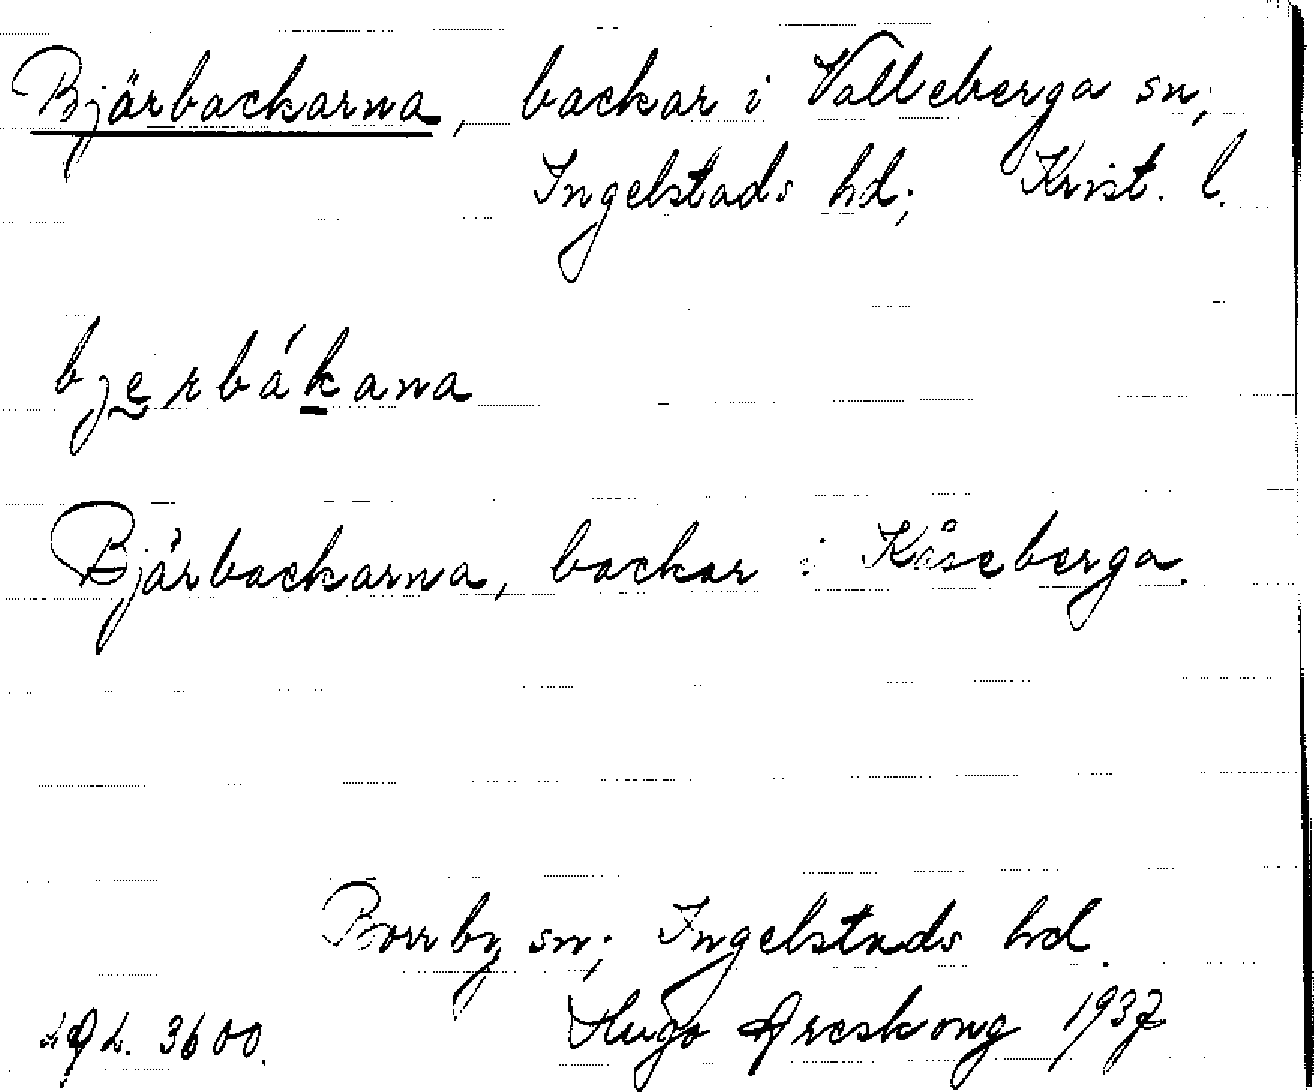 Bjärbackarna, backar i Valleberga sn;
Ingelstads hd; Krist. l.
bjerbákana
Bjärbackarna, backar i Kåseberga.
Borrby sn; Ingelstads hd.
Hugo Areskoug 1937
3600.